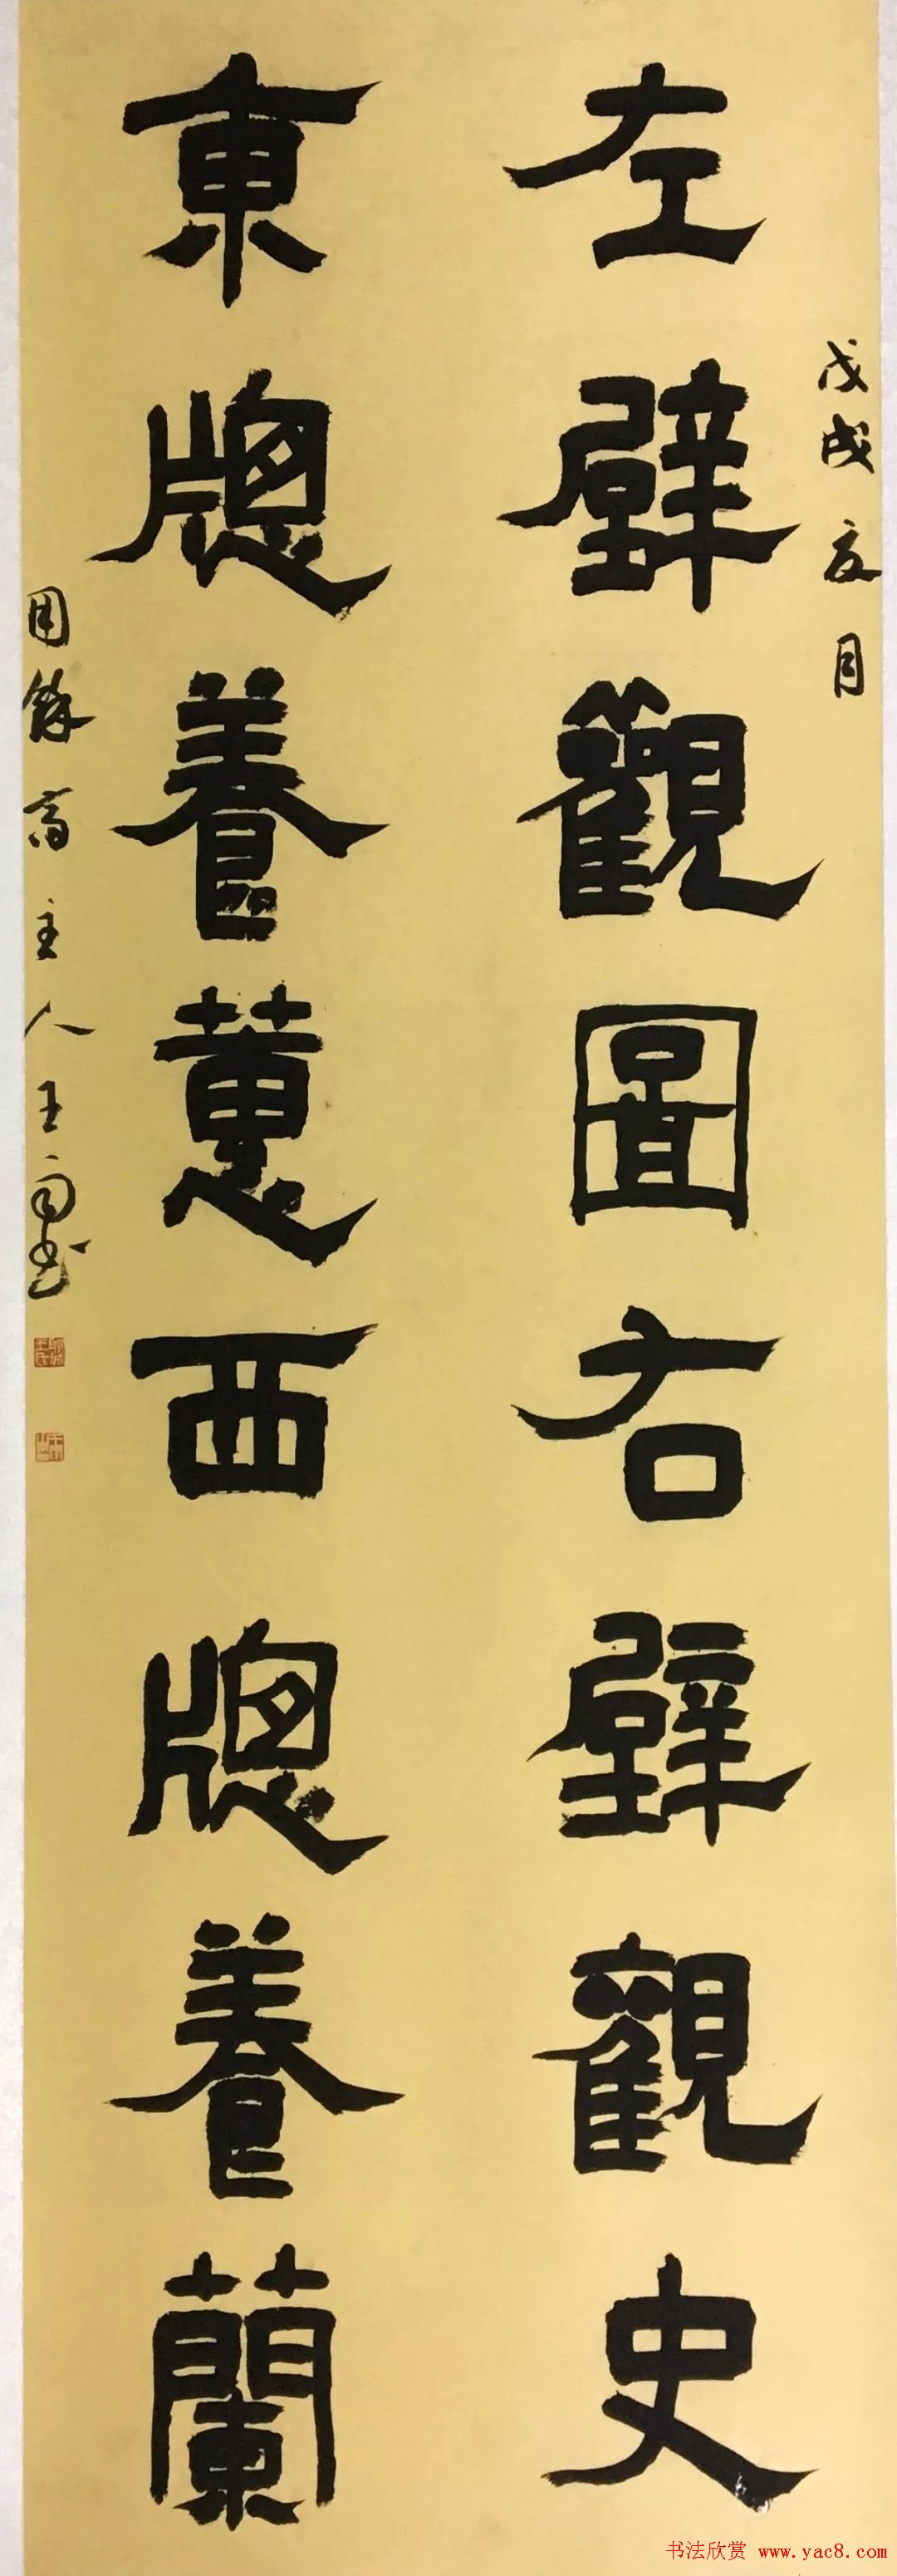 戊戌夏月
左壁觀圖右壁觀史
東牕養蕙西牕養蘭
主人王
书法欣赏 www.yac8.com